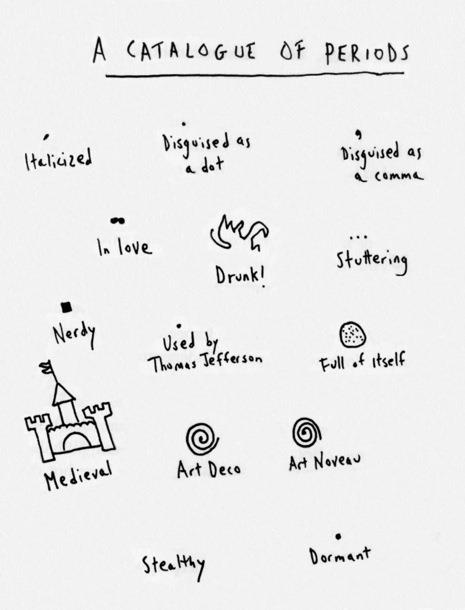 A CATALOGUE OF PERIODS
Italicized
Disguised as
a dot
Disguised as
a comma
In love
Drunk!
Stuttering
Nerdy
Used by
Thomas Jefferson
Full of itself
Medieval
Art Deco
Art Noveau
Stealthy
Dormant